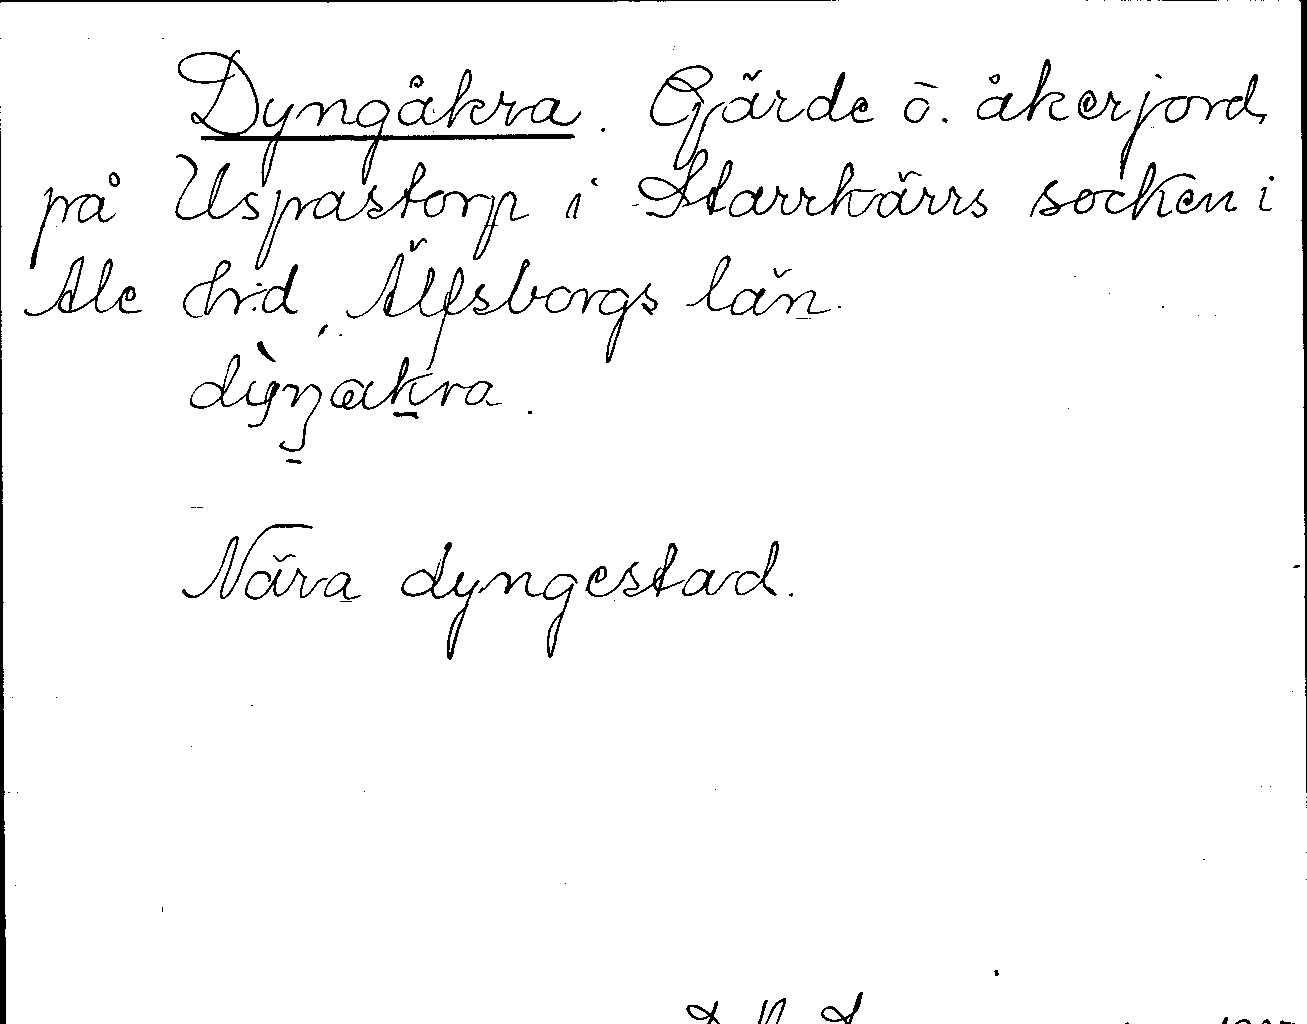 Dyngåkra. Gärde o. åkerjord
på Uspastorp i Starrkärrs socken i
Ale hrd, Älfsborgs län.
Nära dyngestad.